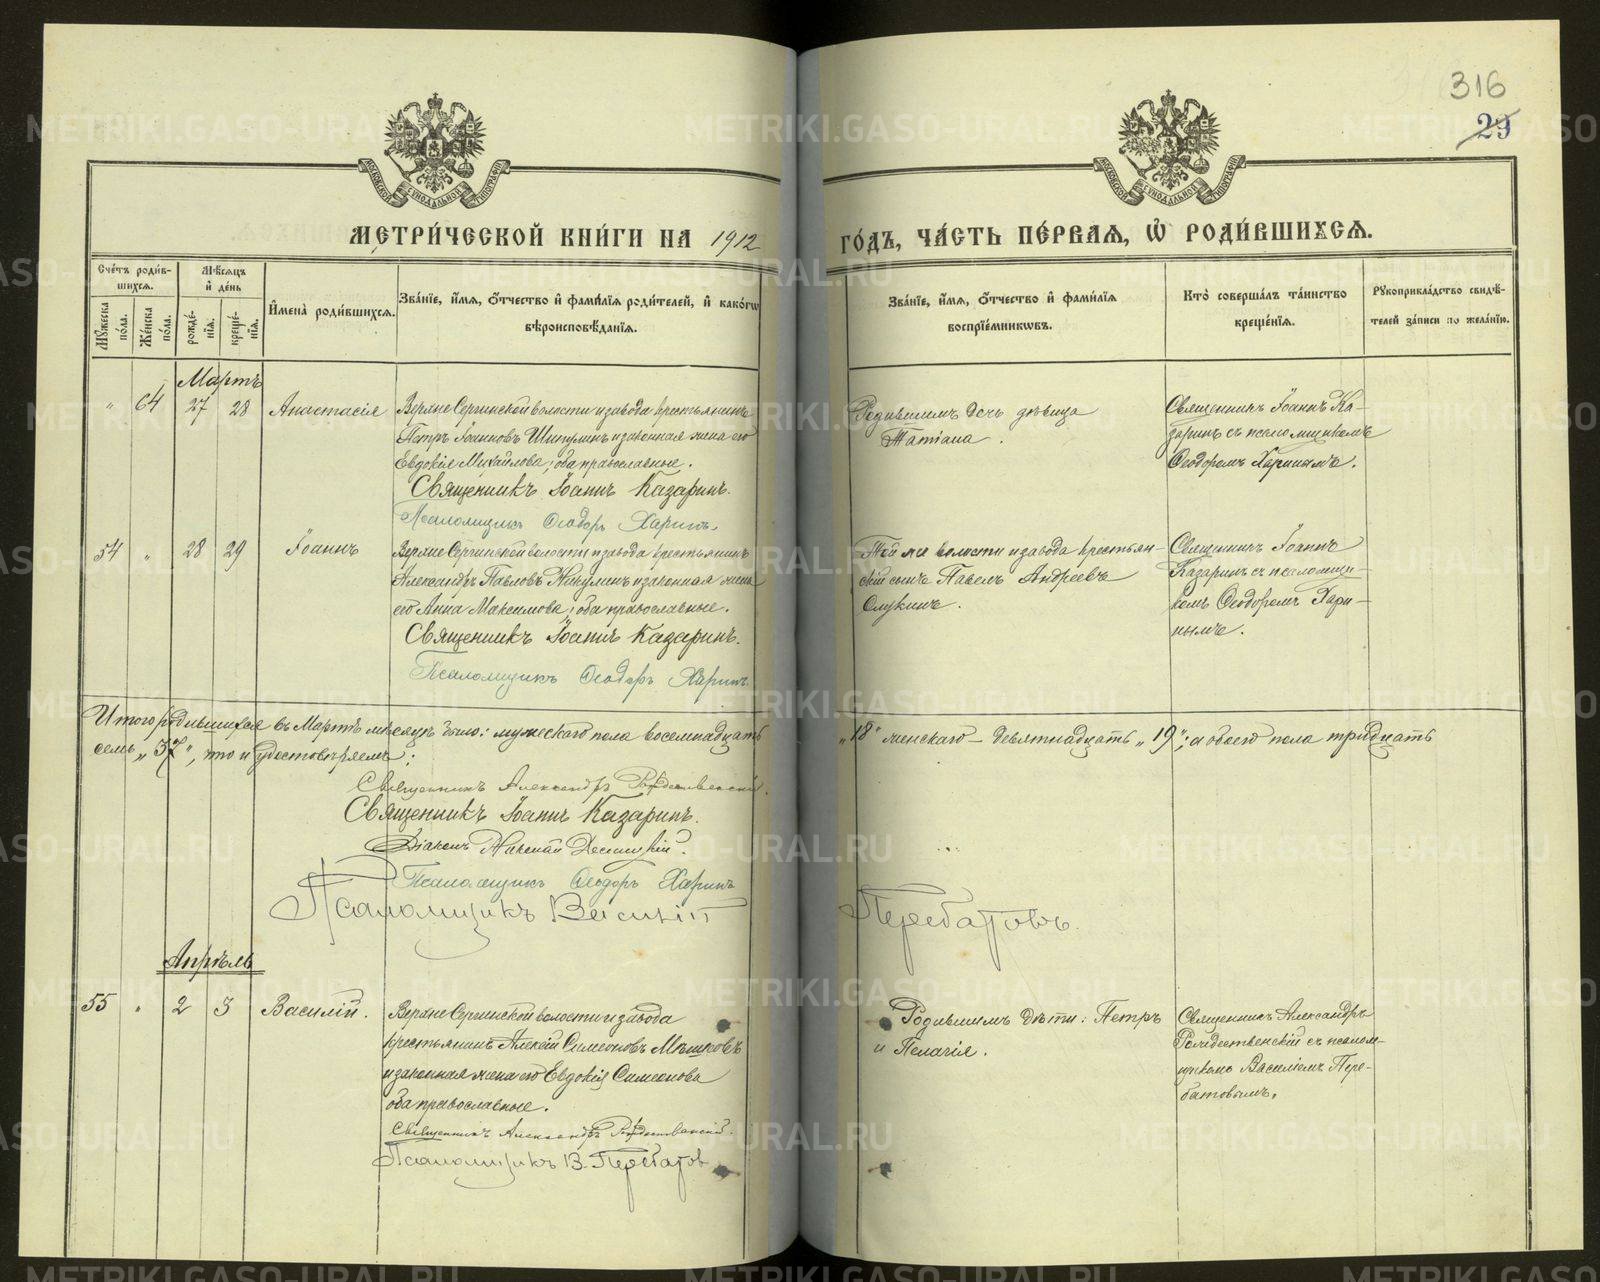 316
29
МОСКОВСКОЙ СѴНОДАЛЬНОЙ ТИПОГРАФІИ
МОСКОВСКОЙ СѴНОДАЛЬНОЙ ТИПОГРАФІИ
МЕТРИ́ЧЕСКОЙ КНИ́ГИ НА 1912 ГО́ДЪ, ЧА́СТЬ ПЕ́РВАЯ, Ѡ҆ РОДИ́ВШИХСЯ.
Сче́тъ роди́в-
шихся.
Му́жеска
по́ла.
Же́нска
по́ла.
Мѣ́сяцъ
и҆ де́нь
рожде́-
нїя.
креще́-
нїя.
И҆мена̀ роди́вшихся.
Зва́нїе, и҆́мя, ѻ҆́тчество и҆ фами́лїя роди́телей, и҆ како́гѡ
вѣроисповѣ́данїя.
Зва́нїе, и҆́мя, ѻ҆́тчество и҆ фами́лїя
воспрїе́мникѡвъ.
Кто̀ соверша́лъ та́инство
креще́нїя.
Рꙋкоприкла́дство свидѣ́-
телей за́писи по жела́нїю.
Мартъ
„ 64 27 28 Анастасія
Верхне Сергинской волости и завода крестьянинъ
Петръ Іоанновъ Шипулинъ и законная жена его
Евдокія Михайлова; оба православные.
Священникъ Іоаннъ Казаринъ.
Псаломщикъ Ѳеодоръ Харинъ.
Родившимъ дочь дѣвица
Татіана.
Священникъ Іоаннъ Ка-
заринъ съ псаломщикомъ
Ѳеодоромъ Харинымъ.
54 „ 28 29 Іоаннъ
Верхне Сергинской волости и завода крестьянинъ
Александръ Павловъ Никулинъ и законная жена
его Анна Максимова; оба православные.
Священникъ Іоаннъ Казаринъ.
Псаломщикъ Ѳеодоръ Харинъ.
Той же волости и завода крестьян-
скій сынъ Павелъ Андреевъ
Слукинъ.
Священникъ Іоаннъ
Казаринъ съ псаломщи-
комъ Ѳеодоромъ Хари-
нымъ.
Итого родившихся въ Мартѣ мѣсяцѣ было: мужескаго пола восемнадцать „18“ женскаго – девятнадцать „19“; а обоего пола тридцать
семь „37“, что и удостовѣряемъ:
Священникъ Александръ Рождественскій.
Священникъ Іоаннъ Казаринъ.
Діаконъ Николай
Псаломщикъ Ѳеодоръ Харинъ
Псаломщикъ Василій Перебатовъ.
Апрѣль
55 „ 2 3 Василій.
Верхне Сергинской волости и завода
крестьянинъ Алексій Симеоновъ Мѣшковъ
и законная жена его Евдокія Симеонова
оба православные.
Священникъ Александръ Рождественскій.
Псаломщикъ В. Перебатовъ
Родившимъ дѣти: Петръ
и Пелагія.
Священникъ Александръ
Рождественскій съ псалом-
щикомъ Василіемъ Пере-
батовымъ.
METRIKI.GASO-URAL.RU